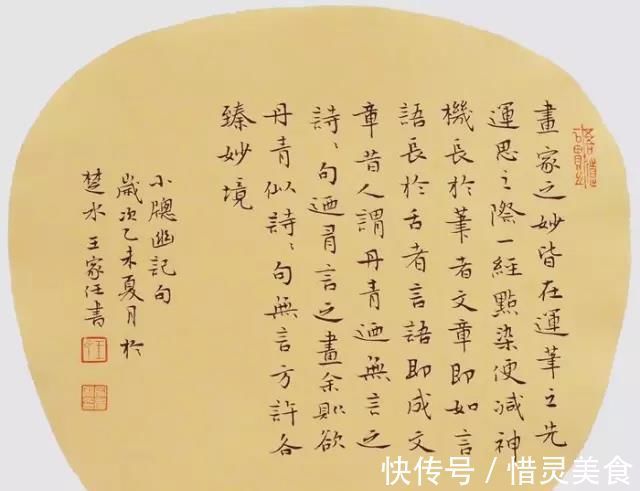 畫家之妙皆在運筆之先
運思之際一經點染便減神
機長於筆者文章即如言
語長於舌者言語即成文
章昔人謂丹青迺無言之
詩〻句迺有言之畫余則欲
丹青似詩〻句無言方許各
臻妙境
小牕幽記句
歲次乙未夏月於
楚水 王家任書
快传号/惜灵美食